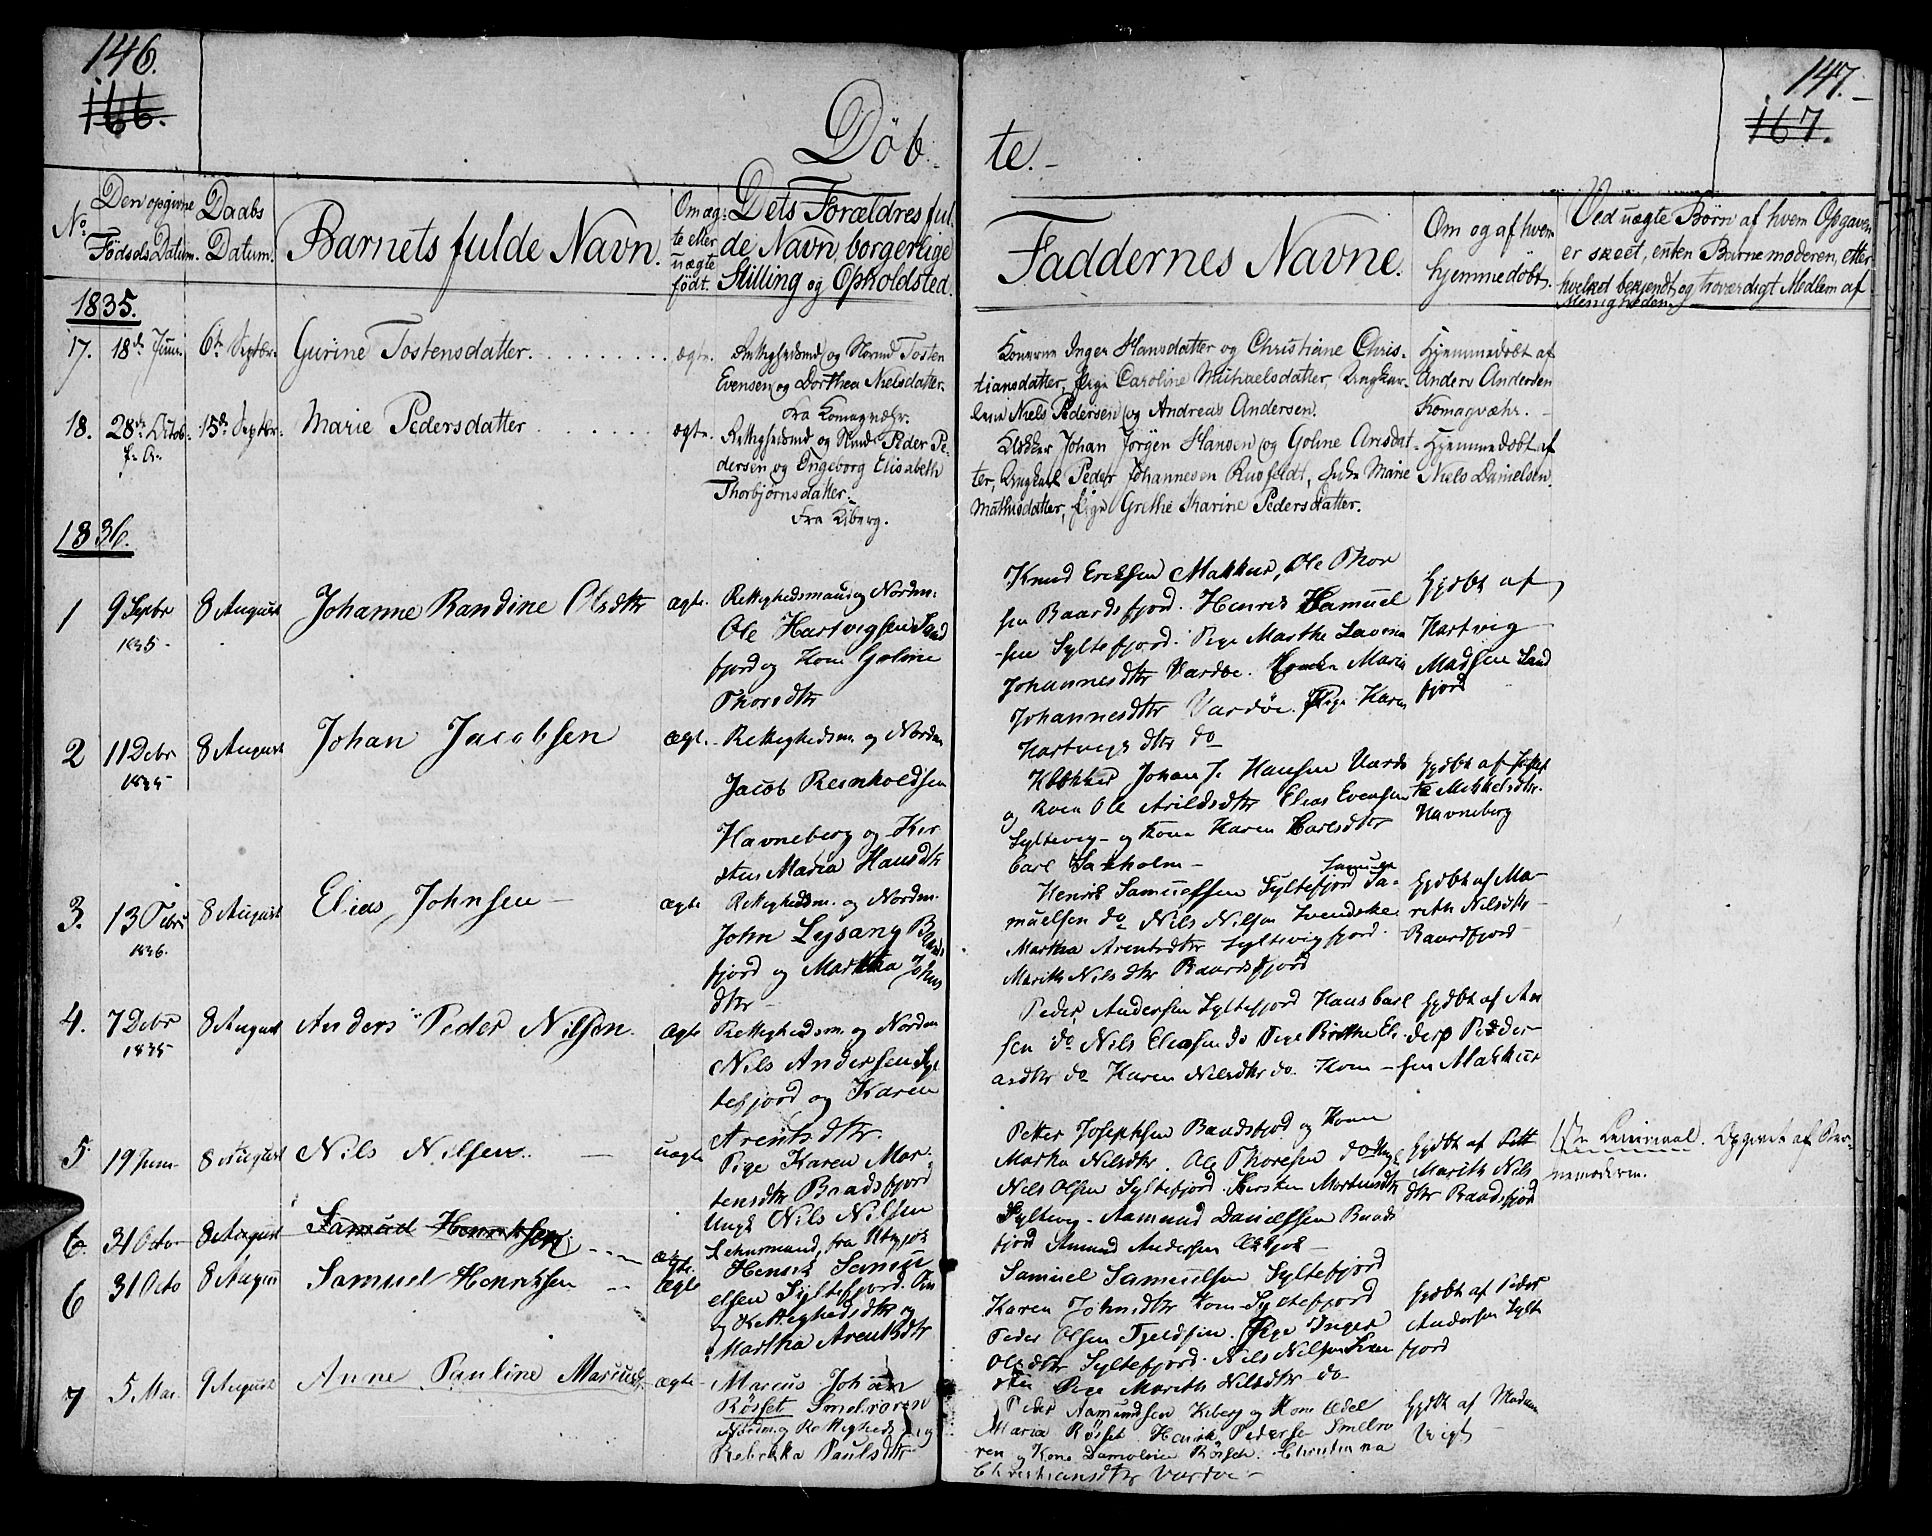 146.
166.
147.
167.
Döb
te.
No.
Den opgivne
Födsels Datum.
Daabs
Datum.
Barnets fulde Navn.
Om æg-
te eller
uægte
födt.
Dets Forældres ful-
de Navn, borgerlige
Stilling og Opholdsted.
Faddernes Navne.
Om og af hvem
hjemmedöbt.
Ved uægte Börn af hvem Opgaven
er skeet, enten Barnemoderen, eller
hvilket bekjendt og troværdigt Medlem af
Menigheden.
1835.
17. 18de Juni 6te Septbr. Gurine Tostensdatter. ægte.
Rettighedsmd og Normd Tosten
Evensen og Dorthea Nielsdatter.
fra Komagvæhr.
Konerne Inger Hansdatter og Christiane Chris-
tiansdatter, Pige Caroline Michaelsdatter, Ungkar-
lene Niels Pedersen og Andreas Andersen.
Hjemmedöbt af
Anders Andersen
Komagvæhr.
18. 28de Octob. f. A. 15de Septbr. Marie Pedersdatter ægte.
Rettighedsmd og Nmd Peder Pe-
dersen og Ingeborg Elisabeth
Thorbjörnsdatter.
Fra Kiberg.
Klokker Johan Jörgen Hansen og Goline Arilsdat-
ter, Ungkarl Peder Johannesen Rusfeldt, Enke Marie
Mathisdatter, Pige Grethe Karine Pedersdatter.
Hjemmedöbt af
Niels Danielsen.
1836.
1 9 Septbr 1835 8 August Johanne Randine Olsdtr ægte.
Rettighedsmand og Nordm:
Ole Hartvigsen Sand
fjord og Kone Goline
Thorsdtr
Knud Ericksen Makkur, Ole Thor
sen Baardsfjord. Henrik Samuel
-sen Syltefjord. Pige Marthe Lavina
Johannesdtr Vardöe. Enke Maria
Johannesdtr Vardöe. Pige Karen
Hartvigsdtr do
Hjdöbt af
Hartvig
Madsen Sand
fjord
2 11 Decbr 1835 8 August Johan Jacobsen ægte.
Rettighedsm. og Nordm
Jacob Reinholdsen
Havneberg og Kir
sten Maria Hansdtr
Klokker Johan J. Hansen Vardö
og Kone Ole Arildsdtr Elias Evensen
Syltevig - og Kone Karen Carlsdtr
Carl Saxholm -
Hjdöbt af
te Mikkelsdtr.
Havneberg
3. 13 Febr 1836. 8 August Elias Johnsen ægte
Rettighedsm. og Nordm.
John Lysang Baards
fjord og Martha Johns
dtr
Henrik Samuelsen Syltefjord Sa-
muelsen do Nils Nilsen Svendske
Martha Arentsdtr Syltevigfjord.
Marith Nilsdtr Baardsfjord
Hjdöbt af Ma-
reth Nilsdtr
Baardfjord
4. 7 Decbr 1835 8 August Anders Peder Nilsen. ægte
Rettighedsm. og Nordm
Nils Andersen Syl
tefjord og Karen
Arentsdtr.
Peder Andersen Syltefjord Hans Carl
sen do Nils Eliasen do Pige Birthe Eli-
asdtr do Karen Nilsdtr do. Kone
Hjdöbt af An
ders Peder-
sen Makkur
5. 19 Juni 8 August Nils Nilsen. uægte
Pige Karen Mor-
tensdtr Baadsfjord
Ungk Nils Nilsen
Petter Josephsen Baadsfjord og Kone
Martha Nilsdtr. Ole Thoresen do Ungk
Nils Olsen Syltefjord. Kirsten Mortensdtr
Syltevig - Aamund Danielssen Baads
fjord Amund Andersen
Hjdöbt af
Marith Nils
dtr Baadsfjord
1ste Leiermaal. Opgivet af Bar-
nemoderen.
6. 31 Octo 8 August Samuel Henriksen ægte.
6 31 Octo 8 August Samuel Henriksen ægte
Henrik Samu
elsen Syltefjord.
Martha Arentsdtr
Samuel Samuelsen Syltefjord
Karen Johnsdtr Kone Syltefjord
Peder Olsen Fjeldsen. Pige Inger
Olsdtr Syltefjord. Nils Nilsen Sven
ske Pige Marith Nilsdtr do
Hjdöbt af Peder
Andersen Sylt
fjord
7 5. Mai 9 August Anne Pauline Marcusd. ægte
Marcus Johan
Rösset Smelroren
Nordm og Rettigheds og
Rebekka Paulsdtr
Peder Aamundsen Kiberg og Kone Edel
Maria Rösset. Henrik Pedersen Smelro
ren og Kone Rösset. Christiana
Christiansdtr Vardöe -
Hjdöbt af Madam